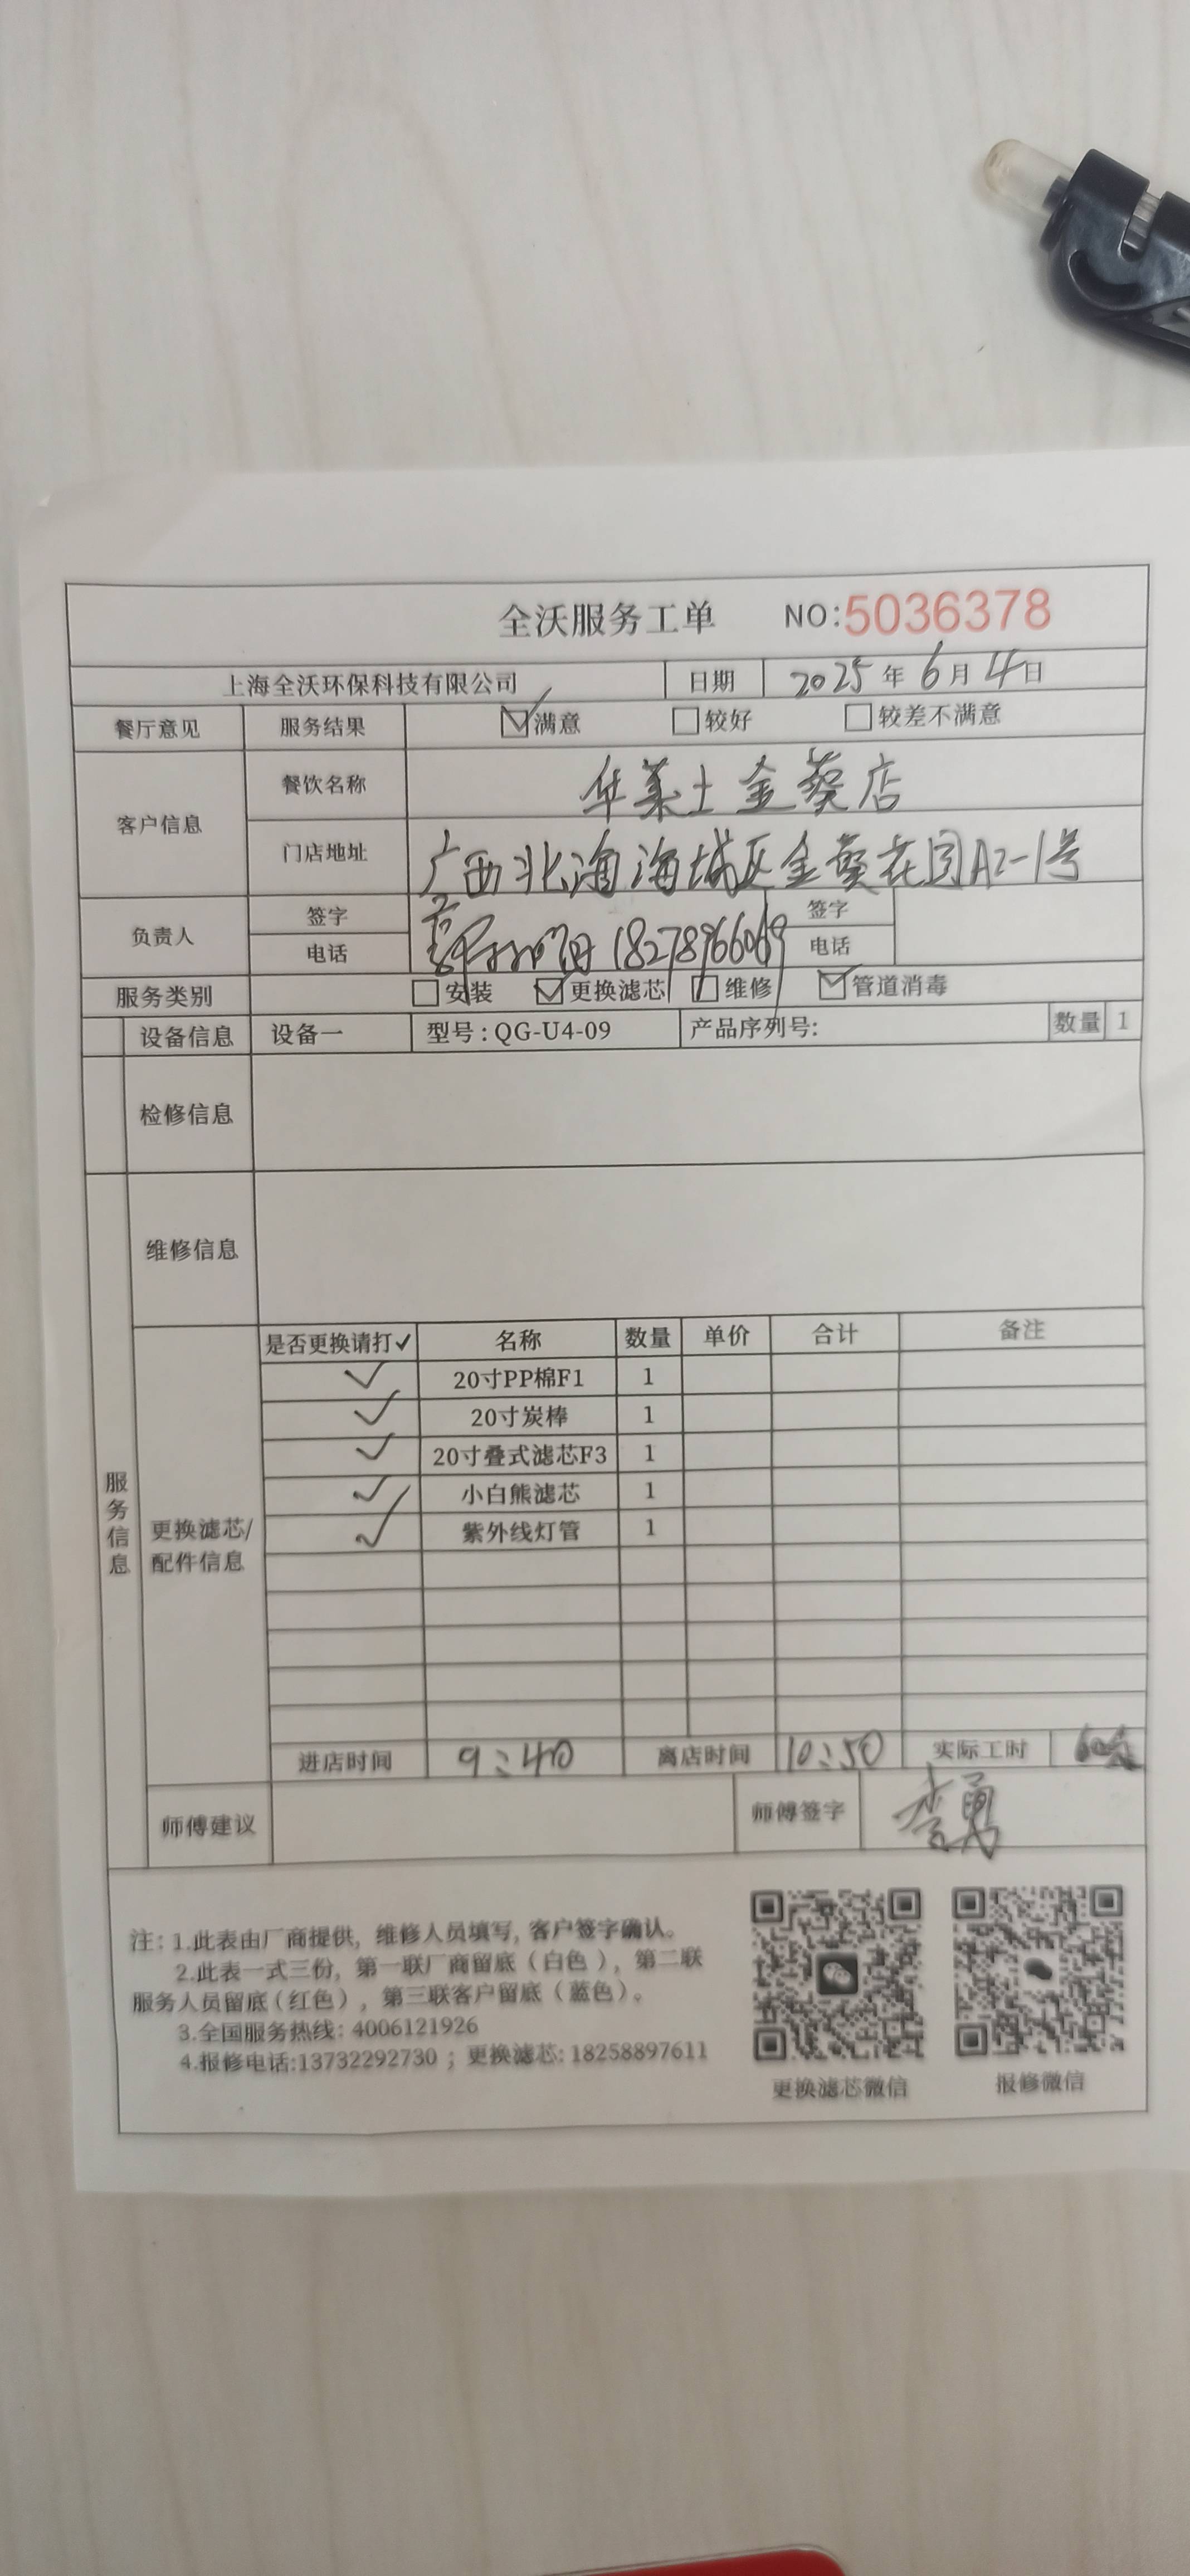 全沃服务工单 NO:5036378
上海全沃环保科技有限公司 日期 2025年6月4日
餐厅意见 服务结果 ☑满意 □较好 □较差不满意
客户信息
餐饮名称 华莱士金葵店
门店地址 广西北海海城区金葵花园A2-1号
负责人 签字 签字
电话 18278966069 电话
服务类别 □安装 ☑更换滤芯 □维修 ☑管道消毒
设备信息 设备一 型号:QG-U4-09 产品序列号: 数量 1
检修信息
维修信息
服务信息
更换滤芯/配件信息
是否更换请打✓ 名称 数量 单价 合计 备注
✓ 20寸PP棉F1 1
✓ 20寸炭棒 1
✓ 20寸叠式滤芯F3 1
✓ 小白熊滤芯 1
✓ 紫外线灯管 1
进店时间 9:40 离店时间 10:50 实际工时
师傅建议 师傅签字 李勇
注:1.此表由厂商提供,维修人员填写,客户签字确认。
2.此表一式三份,第一联厂商留底(白色),第二联
服务人员留底(红色),第三联客户留底(蓝色)。
3.全国服务热线:4006121926
4.报修电话:13732292730;更换滤芯:18258897611
更换滤芯微信 报修微信